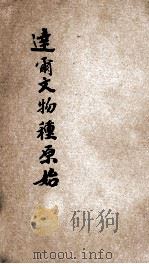 達爾文物種原始
研狗
mtoou.info